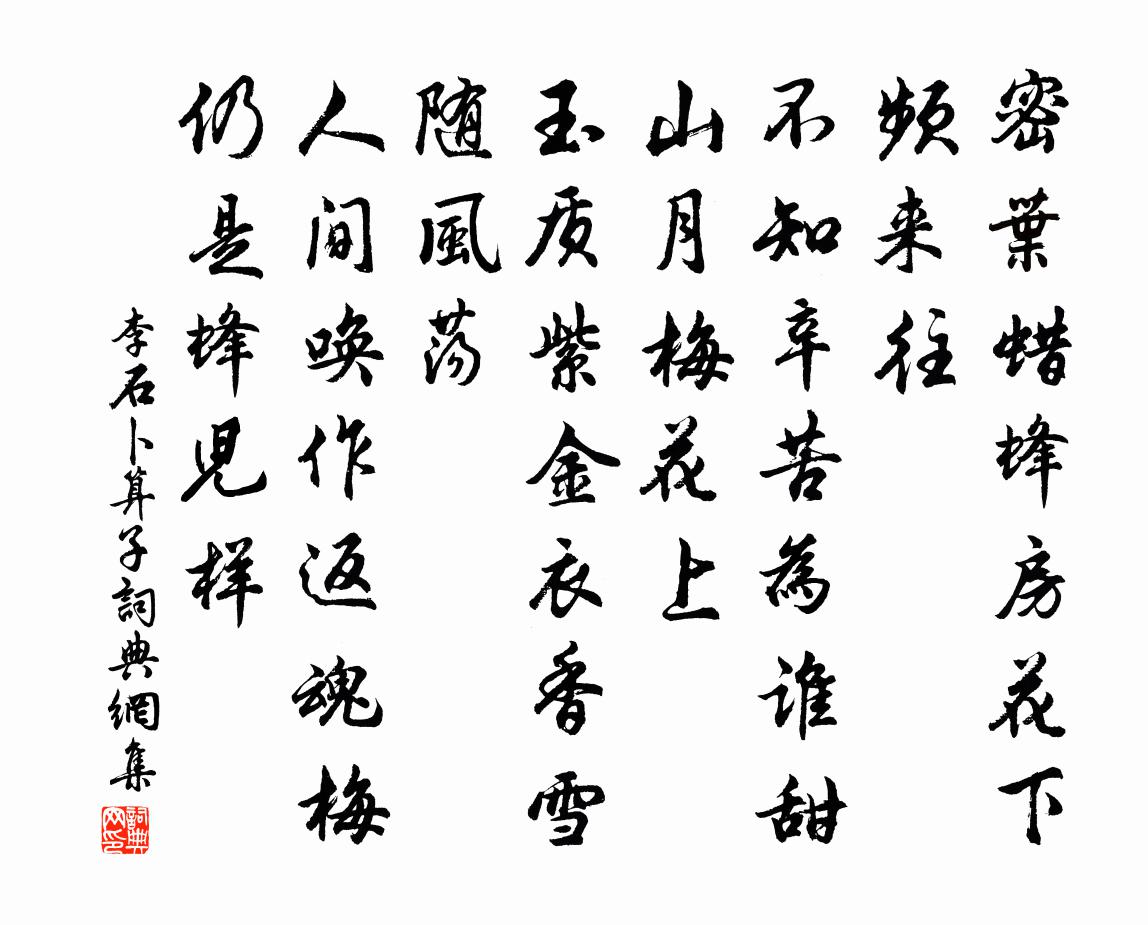 密葉蜡蜂房花下
频来往
不知辛苦為谁甜
山月梅花上
玉质紫金衣香雪
随風荡
人间唤作返魂梅
仍是蜂児样
李石卜算子詞典網集
詞典网印